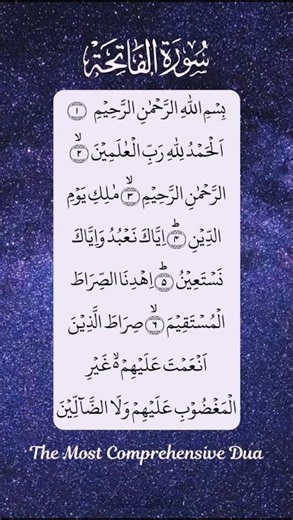 سُوْرَةُ الْفَاتِحَة
بِسْمِ اللهِ الرَّحْمٰنِ الرَّحِيْمِ ۝١
اَلْحَمْدُ لِلّٰهِ رَبِّ الْعٰلَمِيْنَ ۙ‏۝٢
الرَّحْمٰنِ الرَّحِيْمِ ۙ‏۝٣ مٰلِكِ يَوْمِ
الدِّيْنِ ؕ‏۝٤ اِيَّاكَ نَعْبُدُ وَاِيَّاكَ
نَسْتَعِيْنُ ؕ‏۝٥ اِهْدِنَا الصِّرَاطَ
الْمُسْتَقِيْمَ ۙ‏۝٦ صِرَاطَ الَّذِيْنَ
اَنْعَمْتَ عَلَيْهِمْ ۙ غَيْرِ
الْمَغْضُوْبِ عَلَيْهِمْ وَلَا الضَّآلِّيْنَ
The Most Comprehensive Dua